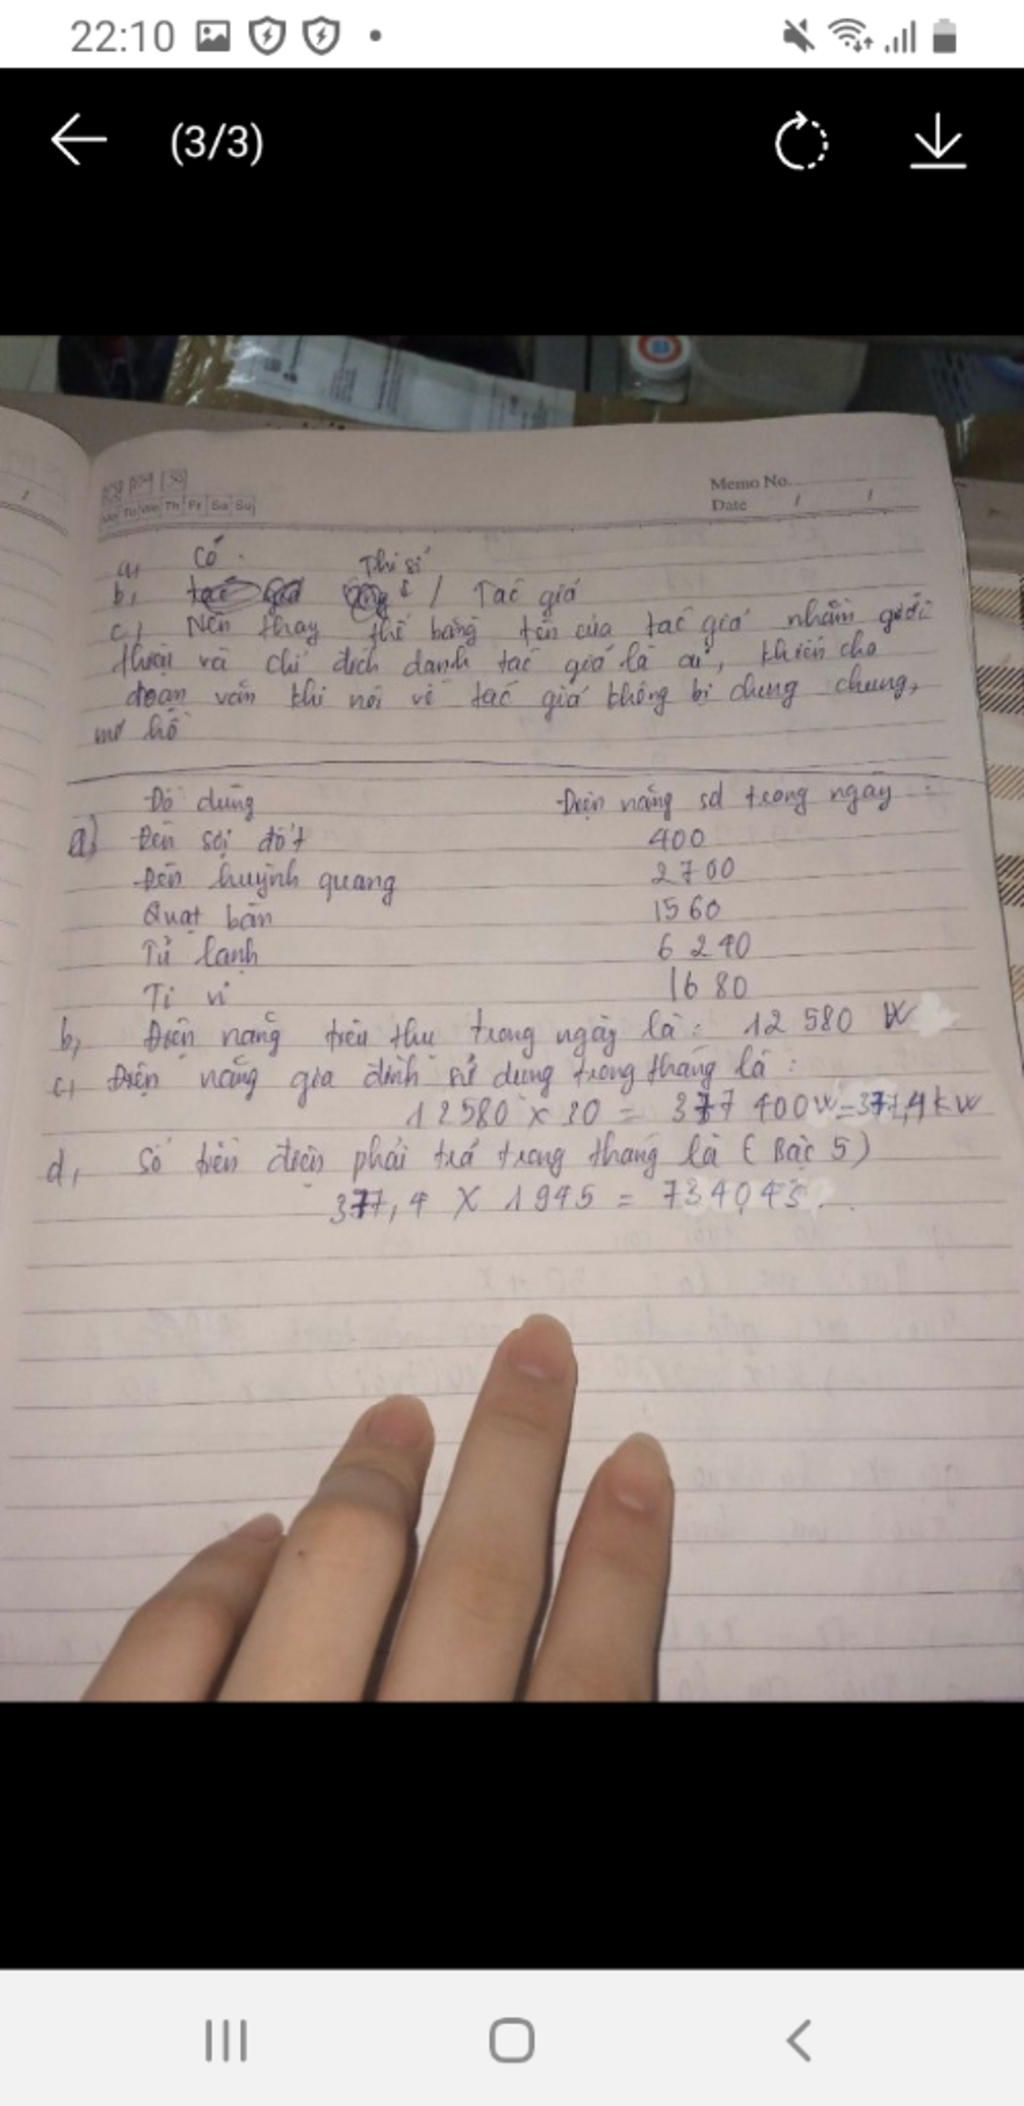 22:10
(3/3)
Memo No.
Date / /
Th Fr Sa Su
a, Có.
Thi sĩ
b, / Tác giả
c, Nên thay thế bằng tên của tác giả nhằm giới
thiệu và chỉ đích danh tác giả là ai, khiến cho
đoạn văn khi nói về tác giả không bị chung chung,
mơ hồ
Đồ dùng Điện năng sd trong ngày
a) Đèn sợi đốt 400
Đèn huỳnh quang 2700
Quạt bàn 1560
Tủ lạnh 6 240
Ti vi 1680
b, Điện năng tiêu thụ trong ngày là: 12 580 W
c, Điện năng gia đình sử dụng trong tháng là:
12580 x 30 = 377 400W=377,4kW
d, Số tiền điện phải trả trong tháng là (Bậc 5)
377,4 X 1945 = 734043